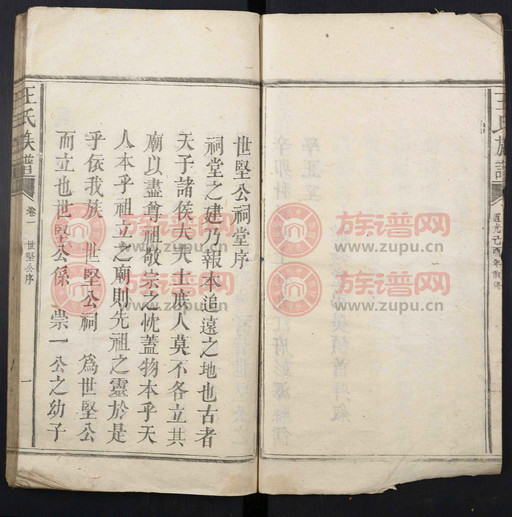 王氏族譜
道光己酉年
世堅公祠堂序
祠堂之建乃報本追遠之地也古者
天子諸侯大夫士庶人莫不各立其
廟以盡尊祖敬宗之忱蓋物本乎天
人本乎祖立之廟則先祖之靈於是
乎依我族 世堅公祠 為世堅公
而立也世堅公係 崇一公之幼子
王氏族譜
卷一
世堅公序
一
族谱网
www.zupu.cn
族谱网
www.zupu.cn
族谱网
www.zupu.cn
族谱网
www.zupu.cn